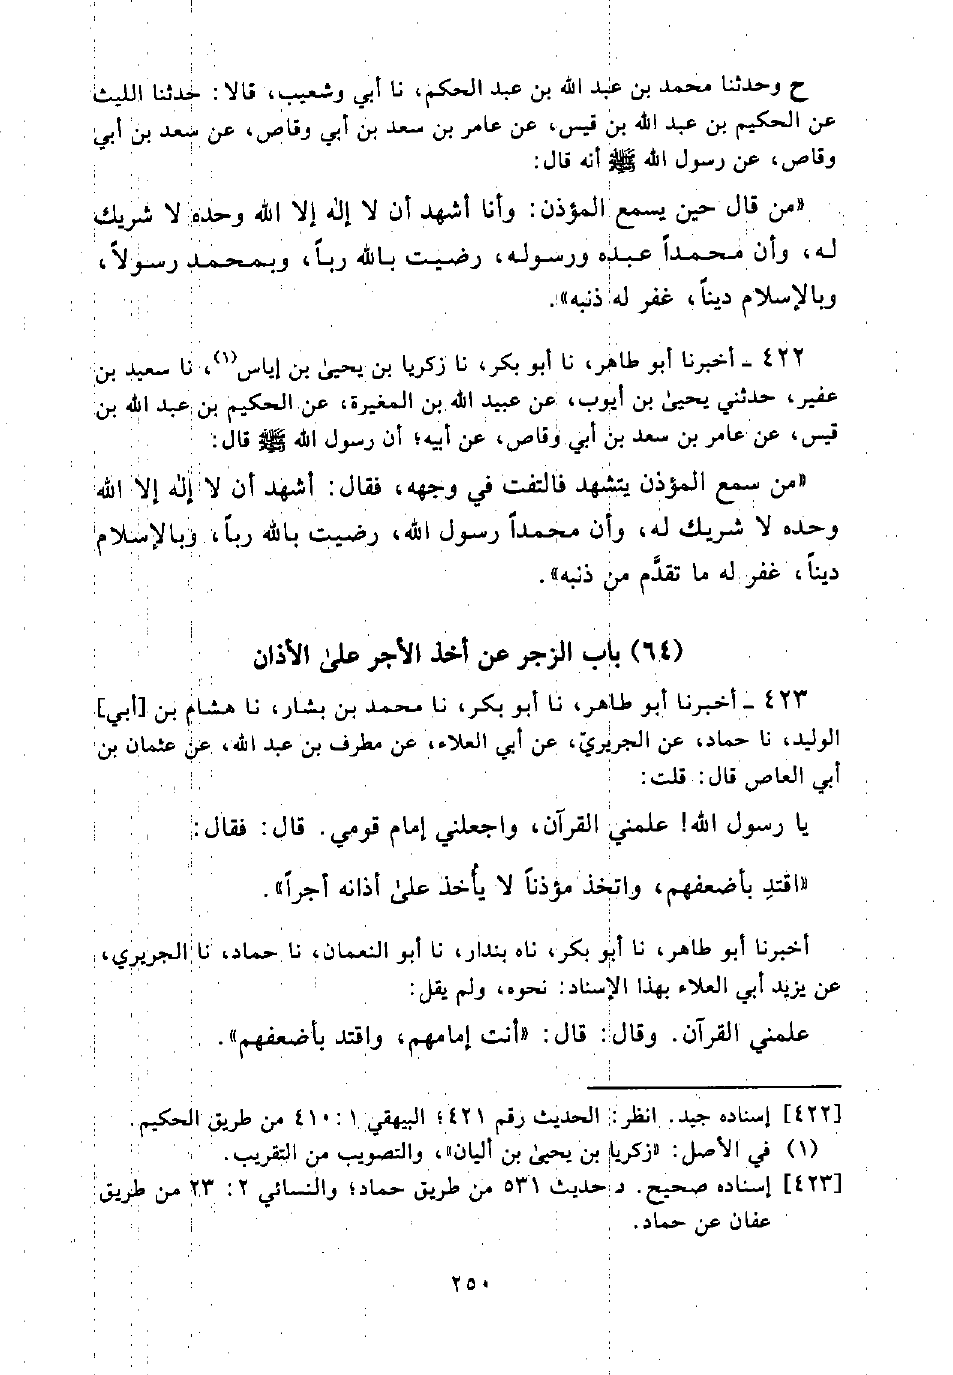 ح وحدثنا محمد بن عبد الله بن عبد الحكم، نا أبي وشعيب، قالا: حدثنا الليث
عن الحكيم بن عبد الله بن قيس، عن عامر بن سعد بن أبي وقاص، عن سعد بن أبي
وقاص، عن رسول الله ﷺ أنه قال:
«من قال حين يسمع المؤذن: وأنا أشهد أن لا إلٰه إلا الله وحده لا شريك
له، وأن محمداً عبده ورسوله، رضيت بالله رباً، وبمحمد رسولاً،
وبالإسلام ديناً، غفر له ذنبه».
٤٢٢ ـ أخبرنا أبو طاهر، نا أبو بكر، نا زكريا بن يحيىٰ بن إياس(١)، نا سعيد بن
عفير، حدثني يحيىٰ بن أيوب، عن عبيد الله بن المغيرة، عن الحكيم بن عبد الله بن
قيس، عن عامر بن سعد بن أبي وقاص، عن أبيه؛ أن رسول الله ﷺ قال:
«من سمع المؤذن يتشهد فالتفت في وجهه، فقال: أشهد أن لا إلٰه إلا الله
وحده لا شريك له، وأن محمداً رسول الله، رضيت بالله رباً، وبالإسلام
ديناً، غفر له ما تقدَّم من ذنبه».
(٦٤) باب الزجر عن أخذ الأجر علىٰ الأذان
٤٢٣ ـ أخبرنا أبو طاهر، نا أبو بكر، نا محمد بن بشار، نا هشام بن [أبي]
الوليد، نا حماد، عن الجريريّ، عن أبي العلاء، عن مطرف بن عبد الله، عن عثمان بن
أبي العاص قال: قلت:
يا رسول الله! علمني القرآن، واجعلني إمام قومي. قال: فقال:
«اقتدِ بأضعفهم، واتخذ مؤذناً لا يأخذ علىٰ أذانه أجراً».
أخبرنا أبو طاهر، نا أبو بكر، ناه بندار، نا أبو النعمان، نا حماد، نا الجريري،
عن يزيد أبي العلاء بهذا الإسناد: نحوه، ولم يقل:
علمني القرآن. وقال: قال: «أنت إمامهم، واقتد بأضعفهم».
[٤٢٢] إسناده جيد. انظر: الحديث رقم ٤٢١؛ البيهقي ١: ٤١٠ من طريق الحكيم.
(١) في الأصل: «زكريا بن يحيىٰ بن أليان»، والتصويب من التقريب.
[٤٢٣] إسناده صحيح. د حديث ٥٣١ من طريق حماد؛ والنسائي ٢: ٢٣ من طريق
عفان عن حماد.
٢٥٠